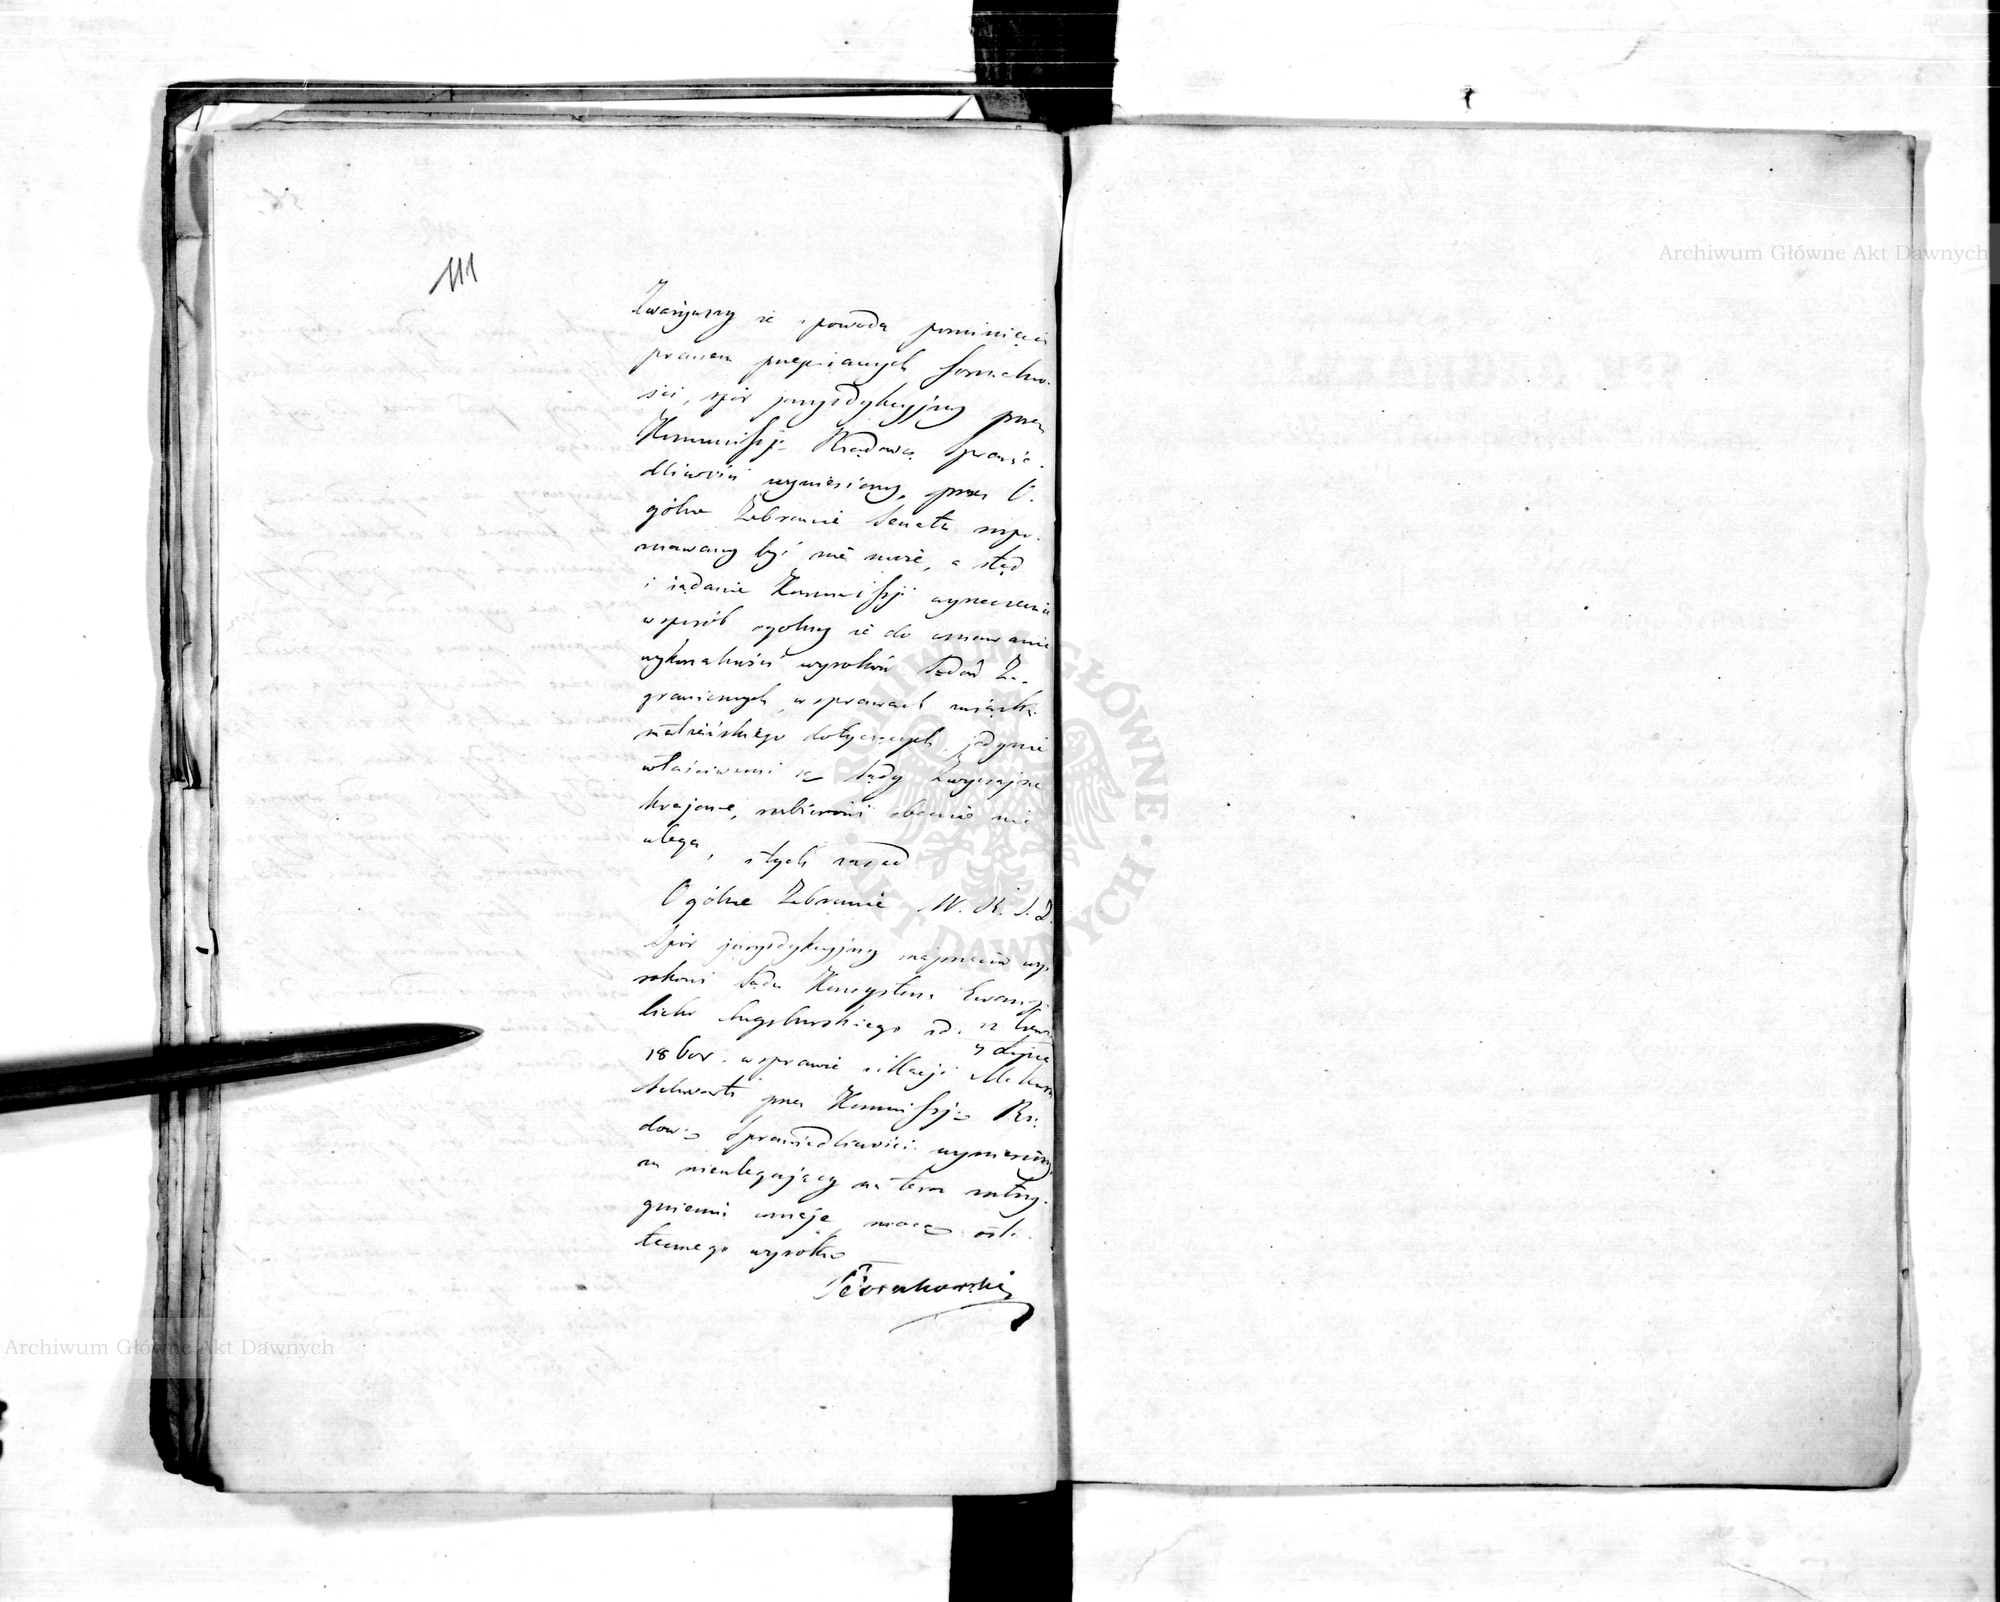 111
Zważywszy że z powodu pominięcia
prawem przepisanych formalno-
ści, spór jurysdykcyjny przez
Kommissją Rządową Sprawie-
dliwości wyniesiony, przez O-
gólne Zebranie Senatu rozpo-
znawany być nie może, a stąd
i żądanie Kommissji wyrzeczenia
w sposób ogólny że do uznawania
wykonalności wyroków Sądów Za-
granicznych w sprawach
małżeńskiego dotyczących, jedynie
właściwemi są Sądy Zwyczajne
krajowe, rozbiorowi obecnie nie
ulega, z tych zasad
Ogólne Zebranie W. R. S. D.
Spór jurysdykcyjny naprzeciw wy-
rokowi Sądu Konsystorza Ewangie-
licko Augsburskiego od 12
7 Lipca
186 w sprawie
Schwartz przez Kommissją Rzą-
dową Sprawiedliwości wyniesiony
za nieulegający na teraz rozstrzy-
gnieniu uznaje, mocą osta-
tecznego wyroku
Archiwum Główne Akt Dawnych
Archiwum Główne Akt Dawnych
ARCHIWUM GŁÓWNE AKT DAWNYCH